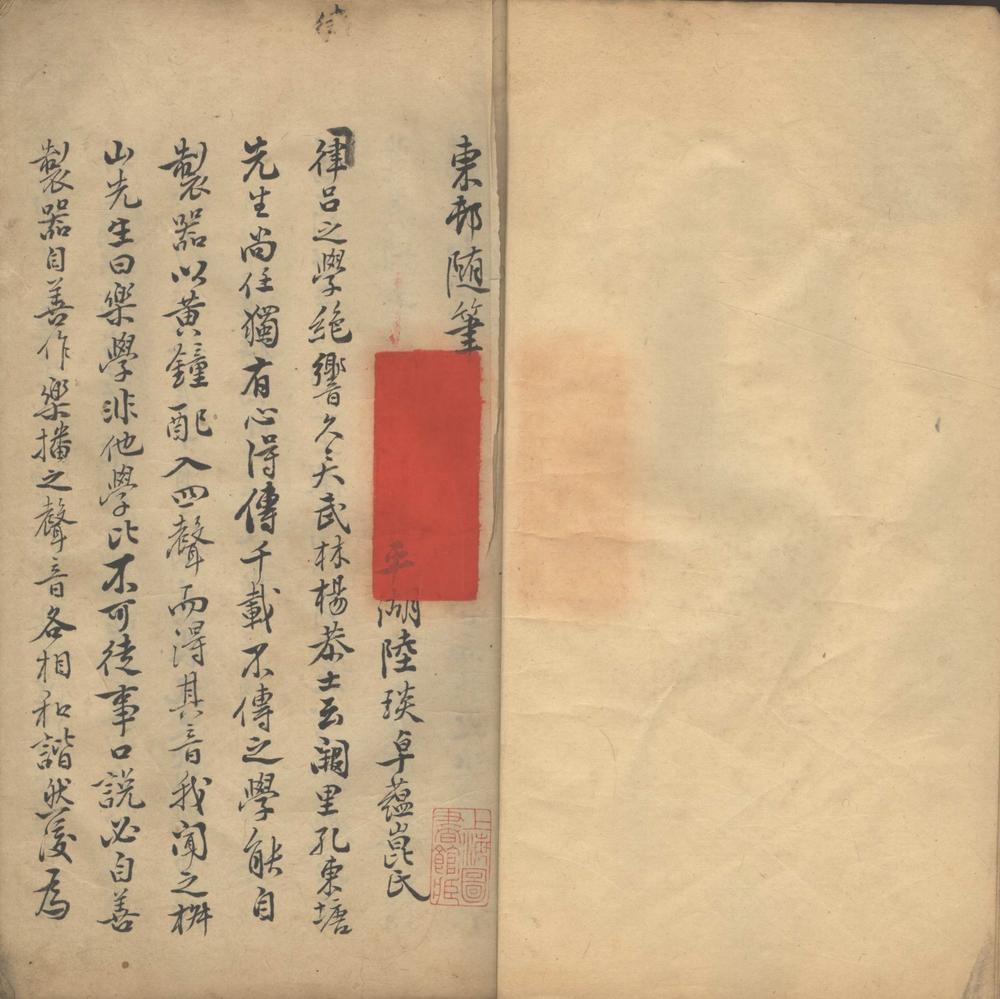 東邨随筆
平湖陸琰卓蘊崑氏
律呂之學絶響久矣武林楊恭士云闕里孔東塘
先生尚任獨有心得傳千載不傳之學能自
製器以黄鐘配入四聲而得其音我聞之桝
山先生曰樂學非他學比不可徒事口説必自善
製器自善作樂播之聲音各相和諧然後爲
上海圖
書館臧